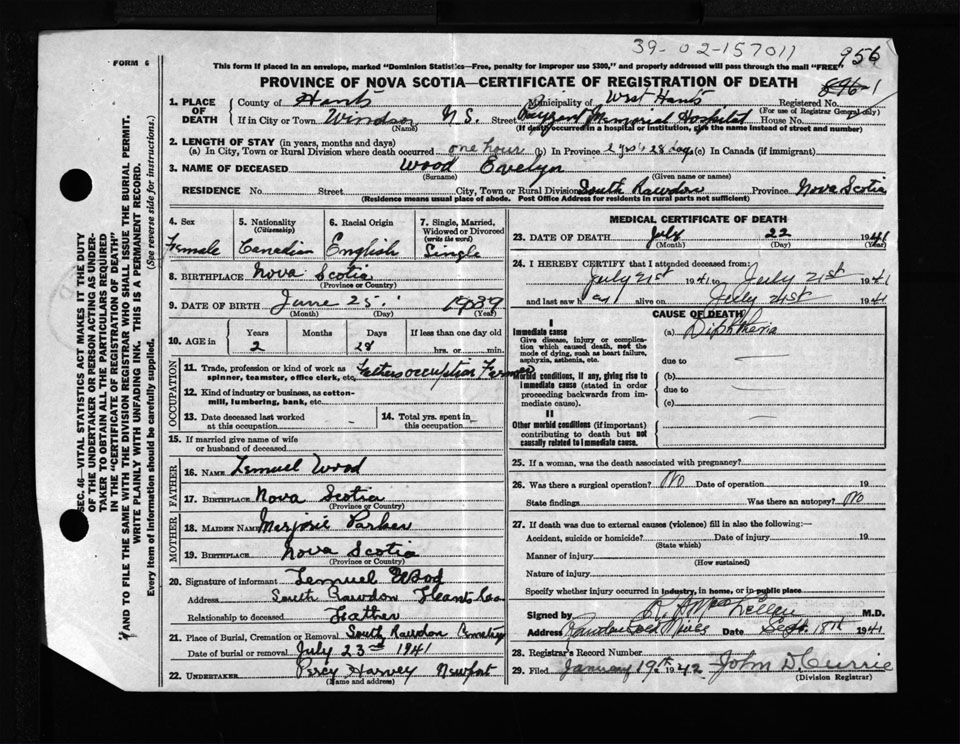 39-02-157011
956
FORM 6
This form if placed in an envelope, marked "Dominion Statistics—Free, penalty for improper use $300," and properly addressed will pass through the mail "FREE"
PROVINCE OF NOVA SCOTIA—CERTIFICATE OF REGISTRATION OF DEATH
1. PLACE OF DEATH
County of Hants Municipality of West Hants Registered No.
(For use of Registrar General only)
If in City or Town Windsor N.S. Street Payzant Memorial Hospital House No.
(Name) (If death occurred in a hospital or institution, give the name instead of street and number)
2. LENGTH OF STAY (in years, months and days)
(a) In City, Town or Rural Division where death occurred one hour (b) In Province 2 yrs 28 days (c) In Canada (if immigrant)
3. NAME OF DECEASED Wood Evelyn
(Surname) (Given name or names)
RESIDENCE No. Street City, Town or Rural Division South Rawdon Province Nova Scotia
(Residence means usual place of abode. Post Office Address for residents in rural parts not sufficient)
4. Sex
Female
5. Nationality
(Citizenship)
Canadian
6. Racial Origin
English
7. Single, Married, Widowed or Divorced
(write the word)
Single
8. BIRTHPLACE Nova Scotia
(Province or Country)
9. DATE OF BIRTH June 25. 1939
(Month) (Day) (Year)
10. AGE in
Years Months Days If less than one day old
2 28 hrs. or min.
OCCUPATION
11. Trade, profession or kind of work as spinner, teamster, office clerk, etc. Fathers occuption Farmer
12. Kind of industry or business, as cotton-mill, lumbering, bank, etc.
13. Date deceased last worked at this occupation
14. Total yrs. spent in this occupation
15. If married give name of wife or husband of deceased
FATHER
16. NAME Lemuel Wood
17. BIRTHPLACE Nova Scotia
(Province or Country)
MOTHER
18. MAIDEN NAME Marjorie Parker
19. BIRTHPLACE Nova Scotia
(Province or Country)
20. Signature of informant Lemuel Wood
Address South Rawdon Hants Co
Relationship to deceased Father
21. Place of Burial, Cremation or Removal South Rawdon Cemetery
Date of burial or removal July 23rd 1941
22. UNDERTAKER Percy Harvey Newport
(Name and address)
MEDICAL CERTIFICATE OF DEATH
23. DATE OF DEATH July 22 1941
(Month) (Day) (Year)
24. I HEREBY CERTIFY that I attended deceased from:
July 21st 1941 July 21st 1941
and last saw h alive on July 21st 1941
CAUSE OF DEATH
I
Immediate cause
Give disease, injury or complication which caused death, not the mode of dying, such as heart failure, asphyxia, asthenia, etc.
(a) Diphtheria
due to
Morbid conditions, if any, giving rise to immediate cause (stated in order proceeding backwards from immediate cause).
(b)
due to
(c)
II
Other morbid conditions (if important) contributing to death but not causally related to immediate cause.
25. If a woman, was the death associated with pregnancy?
26. Was there a surgical operation? No Date of operation 19
State findings Was there an autopsy? No
27. If death was due to external causes (violence) fill in also the following:—
Accident, suicide or homicide? Date of injury 19
(State which)
Manner of injury
(How sustained)
Nature of injury
Specify whether injury occurred in industry, in home, or in public place
Signed by M.D.
Address Rawdon Gold Mines Date Sept. 18th 1941
28. Registrar's Record Number
29. Filed January 19th 1942 John D. Currie
(Division Registrar)
SEC. 46—VITAL STATISTICS ACT MAKES IT THE DUTY
OF THE UNDERTAKER OR PERSON ACTING AS UNDER-
TAKER TO OBTAIN ALL THE PARTICULARS REQUIRED
IN THE "CERTIFICATE OF REGISTRATION OF DEATH"
AND TO FILE THE SAME WITH THE DIVISION REGISTRAR WHO SHALL ISSUE THE BURIAL PERMIT.
WRITE PLAINLY WITH UNFADING INK. THIS IS A PERMANENT RECORD.
Every item of information should be carefully supplied. (See reverse side for instructions.)